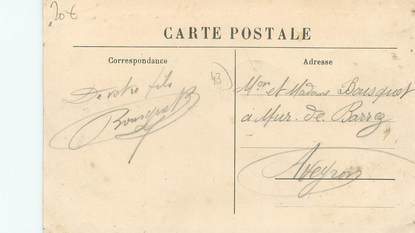 20 €
CARTE POSTALE
Correspondance
Adresse
43
De votre fils
Bousquet B
Mon et Madame Bousquet
a Mur. de Barrez
Aveyron